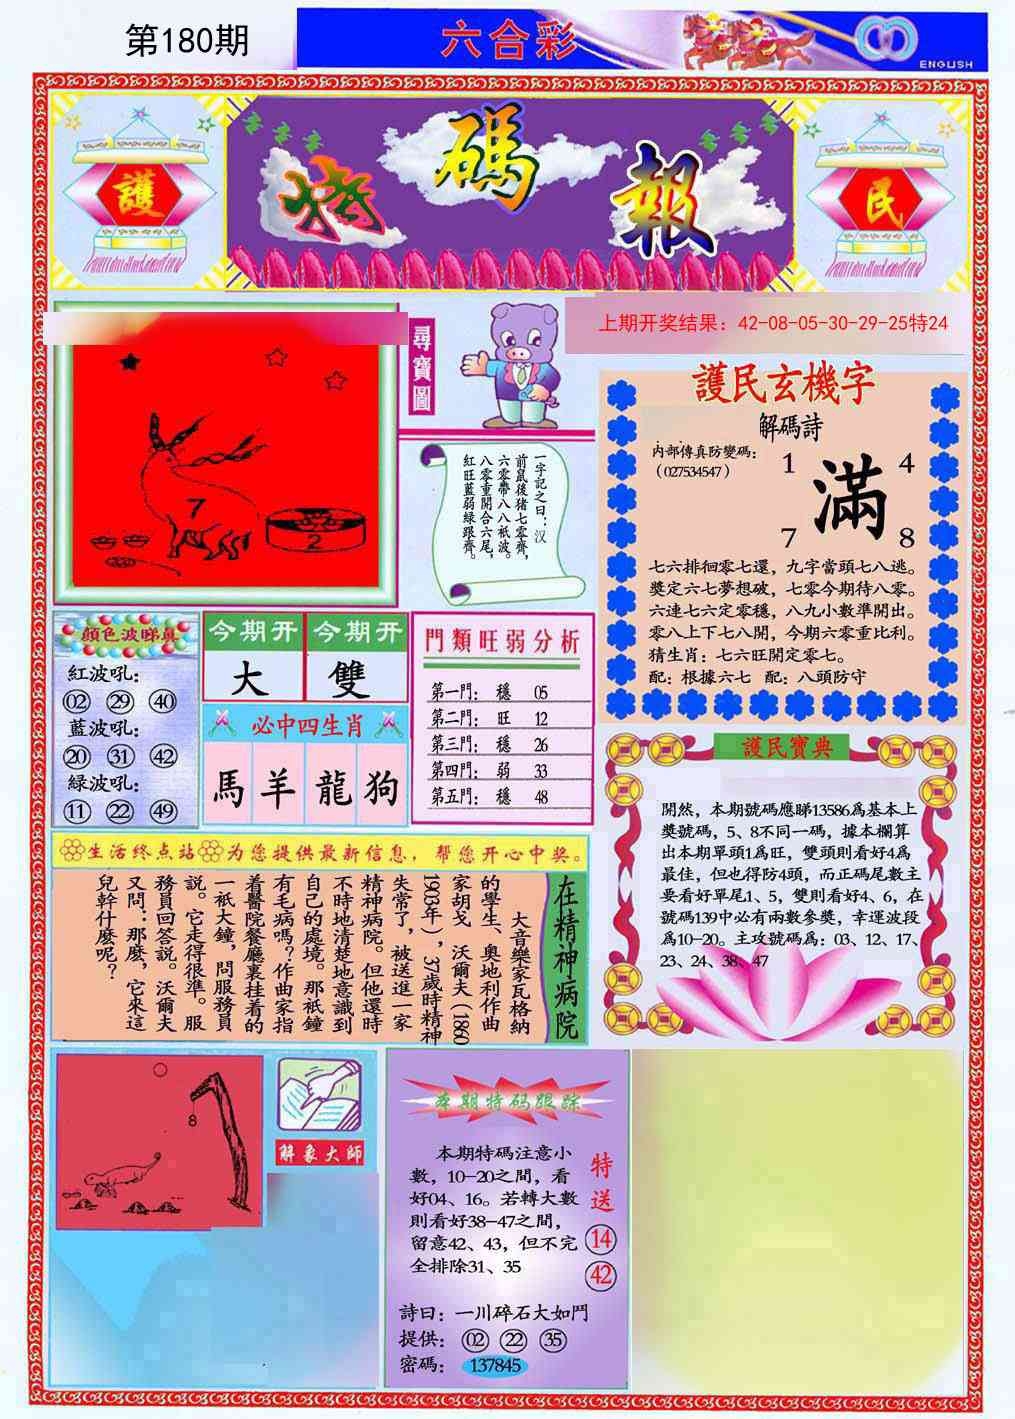 第180期
六合彩
ENGLISH
護
特碼報
民
上期开奖结果：42-08-05-30-29-25特24
尋寶圖
7
2
一字記之曰：汉
前鼠後猪七零齊，
六零帶八八祇波。
八零重開合六尾，
紅旺藍弱綠跟齊。
護民玄機字
解碼詩
内部傳真防變碼：
（027534547）
1
4
滿
7
8
七六排徊零七還，九字當頭七八逃。
獎定六七夢想破，七零今期待八零。
六連七六定零穩，八九小數準開出。
零八上下七八開，今期六零重比利。
猜生肖：七六旺開定零七。
配：根據六七 配：八頭防守
顔色波睇真
紅波吼：
02 29 40
藍波吼：
20 31 42
綠波吼：
11 22 49
今期开
大
今期开
雙
必中四生肖
馬 羊 龍 狗
門類旺弱分析
第一門： 穩 05
第二門： 旺 12
第三門： 穩 26
第四門： 弱 33
第五門： 穩 48
護民寶典
開然，本期號碼應睇13586爲基本上
獎號碼，5、8不同一碼，據本欄算
出本期單頭1爲旺，雙頭則看好4爲
最佳，但也得防4頭，而正碼尾數主
要看好單尾1、5，雙則看好4、6，在
號碼139中必有兩數參獎，幸運波段
爲10-20。主攻號碼爲：03、12、17、
23、24、38、47
生活终点站 为您提供最新信息，帮您开心中奖。
在精神病院
大音樂家瓦格納
的學生、奥地利作曲
家胡戈 沃爾夫（1860
1903年），37歲時精神
失常了，被送進一家
精神病院。但他還時
不時地清楚地意識到
自己的處境。那祇鐘
有毛病嗎？作曲家指
着醫院餐廳裏挂着的
一祇大鐘，問服務員
説。它走得很準。服
務員回答説。沃爾夫
又問：那麽，它來這
兒幹什麽呢？
8
解象大師
本期特码跟踪
本期特碼注意小
數，10-20之間，看
好04、16。若轉大數
則看好38-47之間，
留意42、43，但不完
全排除31、35
特送
14
42
詩曰：一川碎石大如鬥
提供： 02 22 35
密碼： 137845